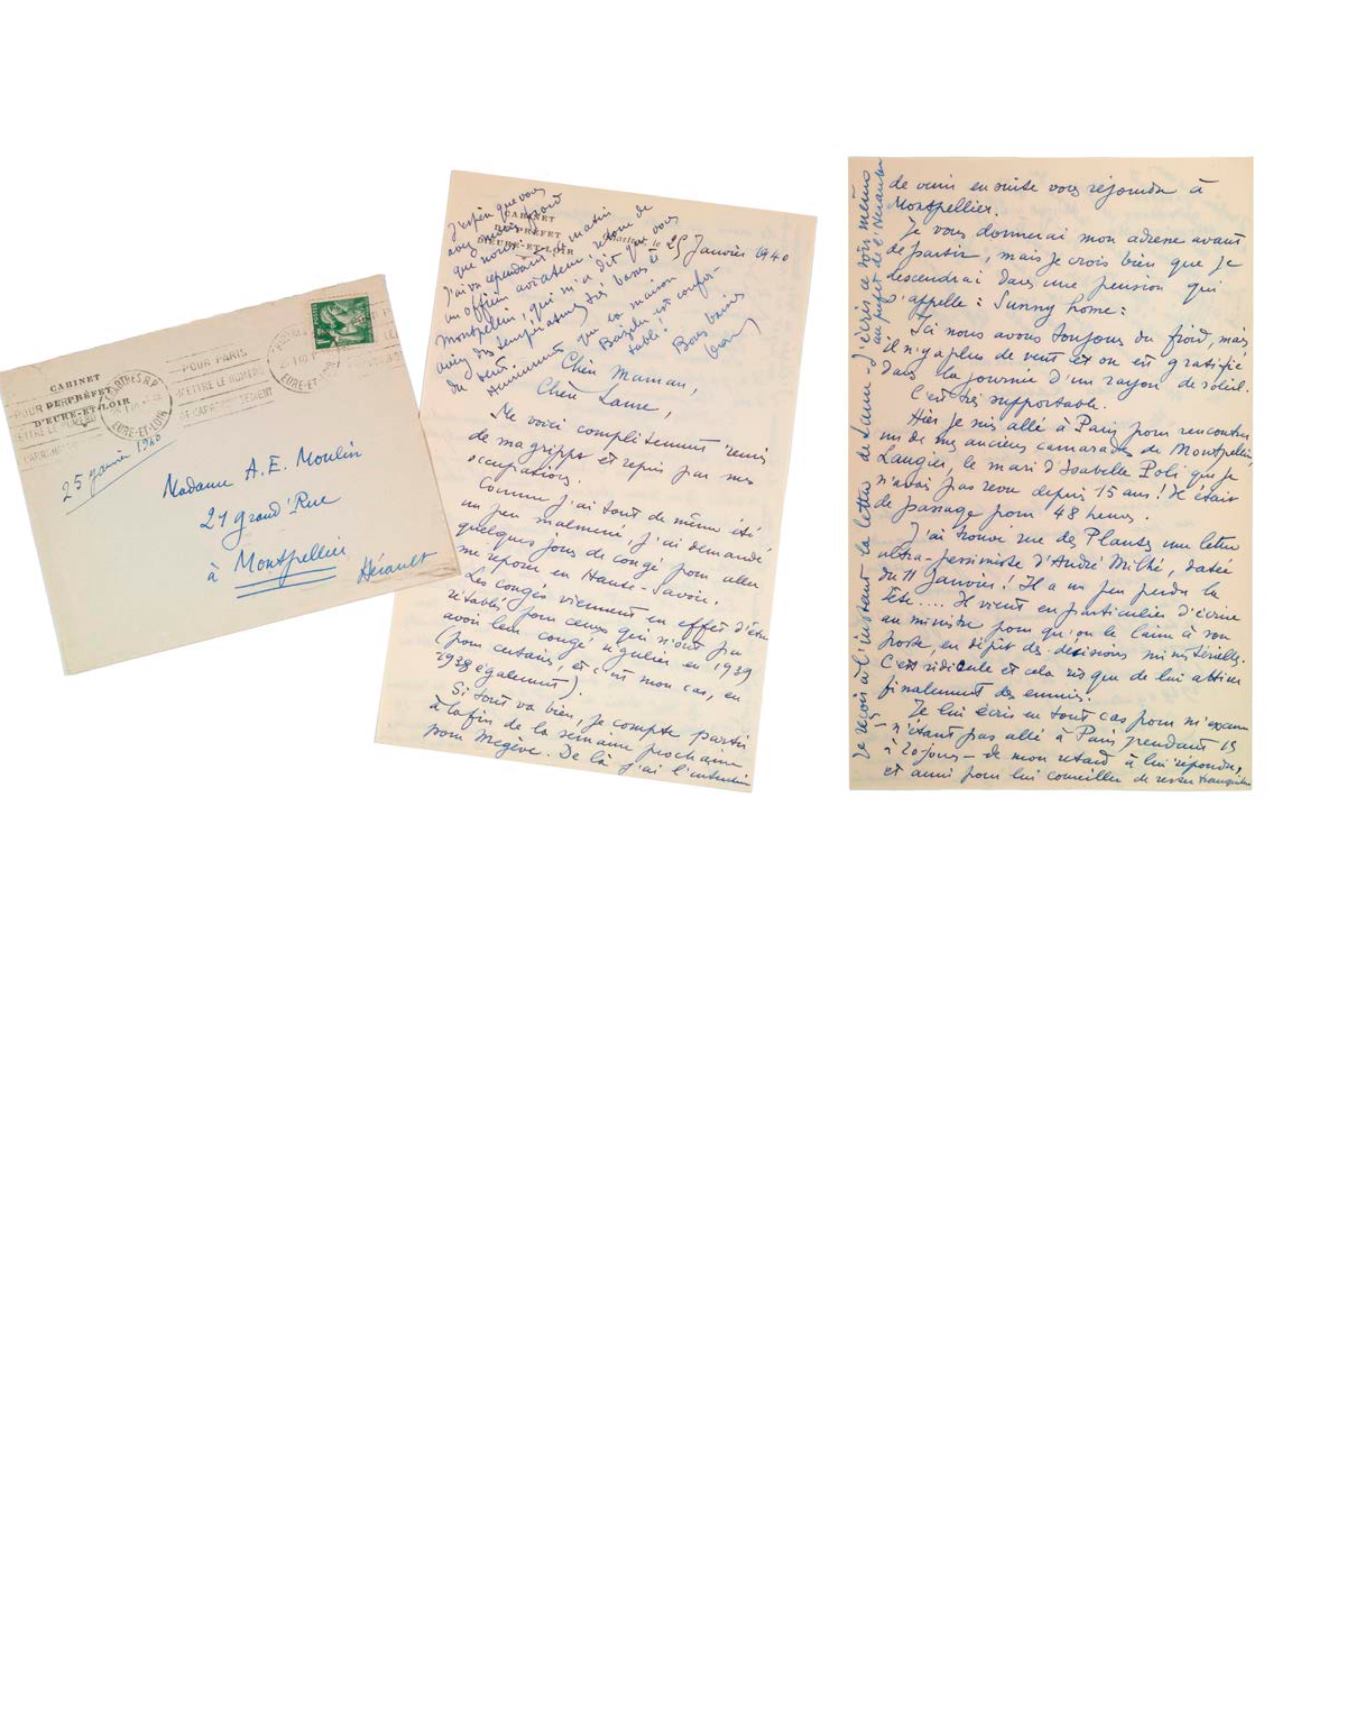 CABINET
DU PRÉFET
D'EURE-ET-LOIR
POUR PARIS
METTRE LE NUMERO
CHARTRES R.P.
EURE-ET-LOIR
25 janvier 1940
Madame A.E. Moulin
21 grand'Rue
à Montpellier
Hérault
CABINET
DU PRÉFET
D'EURE-ET-LOIR
Chartres, le 25 Janvier 1940
J'espère que vous
avez moins froid
que nous.
J'ai vu cependant ce matin
un officier aviateur, retour de
Montpellier, qui m'a dit que vous
aviez des températures très basses et
du vent.
Heureusement que la maison
Bazile est confor-
table!
Bons baisers
Jean
Chère Maman,
Chère Laure,
Me voici complètement remis
de ma grippe et repris par mes
occupations.
Comme j'ai tout de même été
un peu malmené, j'ai demandé
quelques jours de congé pour aller
me reposer en Haute-Savoie.
Les congés viennent en effet d'être
rétablis pour ceux qui n'ont pu
avoir leur congé régulier en 1939
(pour certains, et c'est mon cas, en
1938 également).
Si tout va bien, je compte partir
à la fin de la semaine prochaine
pour Megève. De là j'ai l'intention
de venir ensuite vous rejoindre à
Montpellier.
Je vous donnerai mon adresse avant
de partir, mais je crois bien que je
descendrai dans une pension qui
s'appelle : Sunny home :
Ici nous avons toujours du froid, mais
il n'y a plus de vent et on est gratifié
dans la journée d'un rayon de soleil.
C'est très supportable.
Hier je suis allé à Paris pour rencontrer
un de mes anciens camarades de Montpellier,
Laugier, le mari d'Isabelle Poli que je
n'avais pas revu depuis 15 ans ! Il était
de passage pour 48 heures.
J'ai trouvé rue des Plantes une lettre
ultra-pessimiste d'André Milhé, datée
du 11 Janvier ! Il a un peu perdu la
tête.... Il vient en particulier d'écrire
au ministre pour qu'on le laisse à son
poste, en dépit des décisions ministérielles.
C'est ridicule et cela risque de lui attirer
finalement des ennuis.
Je lui écris en tout cas pour m'excuser
— n'étant pas allé à Paris pendant 15
à 20 jours — de mon retard à lui répondre,
et aussi pour lui conseiller de rester tranquille
Je reçois à l'instant la lettre de Laure - J'écris ce soir même
au préfet de l'Hérault